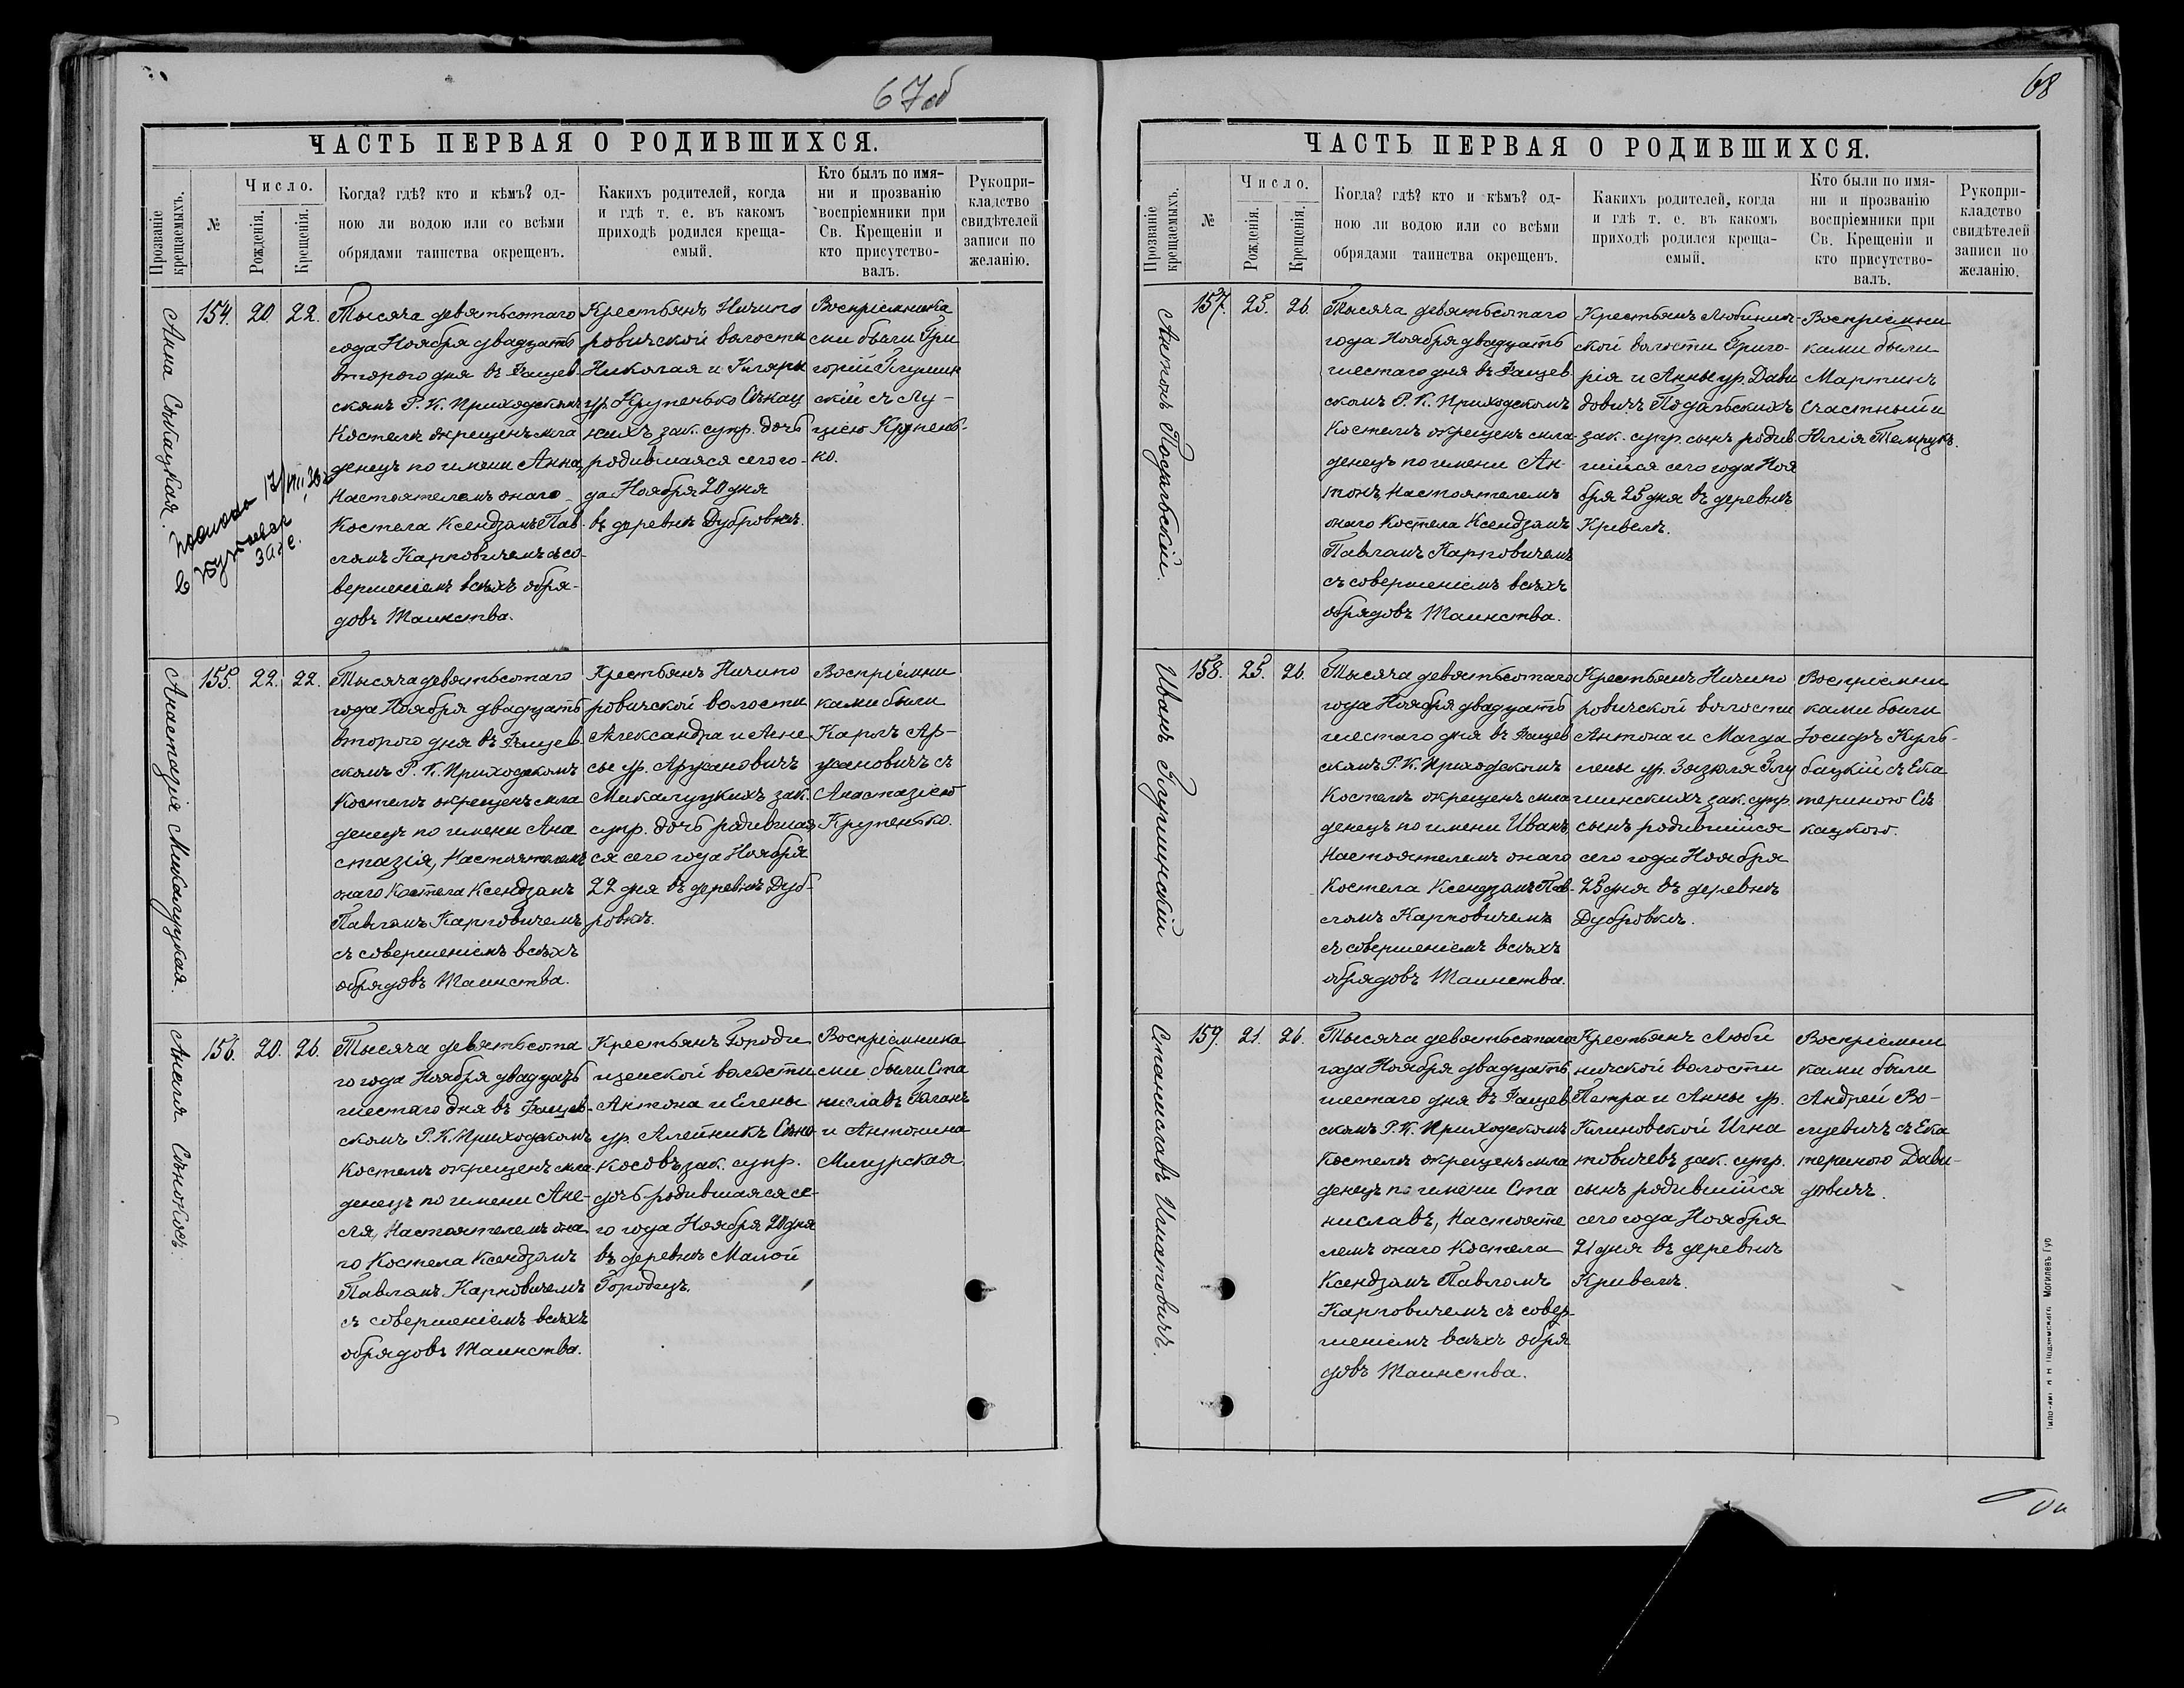 67об
ЧАСТЬ ПЕРВАЯ О РОДИВШИХСЯ.
Прозваніе крещаемыхъ.
№
Число.
Рожденія.
Крещенія.
Когда? гдѣ? кто и кѣмъ? од-
ною ли водою или со всѣми
обрядами таинства окрещенъ.
Какихъ родителей, когда
и гдѣ т. е. въ какомъ
приходѣ родился креща-
емый.
Кто былъ по имя-
ни и прозванію
воспріемники при
Св. Крещеніи и
кто присутство-
валъ.
Рукопри-
кладство
свидѣтелей
записи по
желанію.
Анна Сѣкацкая.
154.
20
22.
Тысяча девятьсотаго
года Ноября двадцать
второго дня въ Фащев-
скомъ Р. К. Приходскомъ
Костелѣ окрещенъ мла
денецъ по имени Анна,
Настоятелемъ онаго
Костела Ксендзомъ Пав-
ломъ Карповичемъ съ со-
вершеніемъ всѣхъ обря-
довъ Таинства.
Крестьянъ Ничипо
ровичской волости
Николая и Кляры
ур. Крупенько Сѣкац
кихъ зак. супр. дочь
родившаяся сего го-
да Ноября 20 дня
въ деревнѣ Дубровкѣ.
Воспріемника
ми были Гри
горій Глушин
скій съ Лу-
цією Крупень-
ко.
Анастазія Микалуцкая.
155.
22.
22.
Тысяча девятьсотаго
года Ноября двадцать
второго дня въ Фащев
скомъ Р. К. Приходскомъ
Костелѣ окрещенъ мла
денецъ по имени Ана
стазія, Настоятелемъ
онаго Костела Ксендзомъ
Павломъ Карповичемъ
съ совершеніемъ всѣхъ
обрядовъ Таинства.
Крестьянъ Ничипо
ровичской волости
Александра и Агне
сы ур. Аржановичъ
Микалуцкихъ зак.
супр. дочь родившая
ся сего года Ноября
22 дня въ деревнѣ Дуб-
ровкѣ.
Воспріемни
ками были
Карлъ Ар-
жановичъ съ
Анастазією
Крупенько.
Анеля Сѣнокосъ.
156.
20.
26.
Тысяча девятьсота
го года Ноября двадцать
шестаго дня въ Фащев-
скомъ Р. К. Приходскомъ
Костелѣ окрещенъ мла-
денецъ по имени Ане-
ля, Настоятелемъ она
го Костела Ксендзомъ
Павломъ Карповичемъ
съ совершеніемъ всѣхъ
обрядовъ Таинства.
Крестьянъ Городи
щенской волости
Антона и Елены
ур. Алейникъ Сѣно
косовъ зак. супр.
дочь родившаяся се-
го года Ноября 20 дня
въ деревнѣ Малой
Городецъ.
Воспріемника
ми были Ста
ниславъ Гоганъ
и Антонина
Мигурская.
68
ЧАСТЬ ПЕРВАЯ О РОДИВШИХСЯ.
Прозваніе крещаемыхъ.
№
Число.
Рожденія.
Крещенія.
Когда? гдѣ? кто и кѣмъ? од-
ною ли водою или со всѣми
обрядами таинства окрещенъ.
Какихъ родителей, когда
и гдѣ т. е. въ какомъ
приходѣ родился креща-
емый.
Кто были по имя-
ни и прозванію
воспріемники при
Св. Крещеніи и
кто присутство-
валъ.
Рукопри-
кладство
свидѣтелей
записи по
желанію.
Антонъ Подгабскій.
157.
25.
26.
Тысяча девятьсотаго
года Ноября двадцать
шестаго дня въ Фащев
скомъ Р. К. Приходскомъ
Костелѣ окрещенъ мла-
денецъ по имени Ан-
тонъ, Настоятелемъ
онаго Костела Ксендзомъ
Павломъ Карповичемъ
съ совершеніемъ всѣхъ
обрядовъ Таинства.
Крестьянъ Любинич-
ской волости Григо-
рія и Анны ур. Дави
довичъ
зак. супр. сынъ родив
шійся сего года Ноя
бря 25 дня въ деревнѣ
Кривелѣ.
Воспріемни
ками были
Мартинъ
Счастный и
Юлія Темрукъ.
Иванъ Глушинскій
158.
25.
26.
Тысяча девятьсотаго
года Ноября двадцать
шестаго дня въ Фащев
скомъ Р. К. Приходскомъ
Костелѣ окрещенъ мла
денецъ по имени Иванъ,
Настоятелемъ онаго
Костела Ксендзомъ Пав-
ломъ Карповичемъ
съ совершеніемъ всѣхъ
обрядовъ Таинства.
Крестьянъ Ничипо
ровичской волости
Антона и Магда
лены ур. Зязюля Глу
шинскихъ зак. супр.
сынъ родившійся
сего года Ноября
25 дня въ деревнѣ
Дубровкѣ.
Воспріемни
ками были
Іосифъ Куль-
бацкій съ Ека
териною Сѣ
кацкою.
Станиславъ Игнатовичъ.
159.
21.
26.
Тысяча девятьсотаго
года Ноября двадцать
шестаго дня въ Фащев
скомъ Р. К. Приходскомъ
Костелѣ окрещенъ мла
денецъ по имени Ста
ниславъ, Настояте
лемъ онаго Костела
Ксендзомъ Павломъ
Карповичемъ съ совер-
шеніемъ всѣхъ обря
довъ Таинства.
Крестьянъ Люби
ничской волости
Петра и Анны ур.
Климовской Игна
товичевъ зак. супр.
сынъ родившійся
сего года Ноября
21 дня въ деревнѣ
Кривелѣ.
Воспріемни
ками были
Андрей Во-
луевичъ съ Ека
териною Дави-
довичъ.
Могилевъ Губ